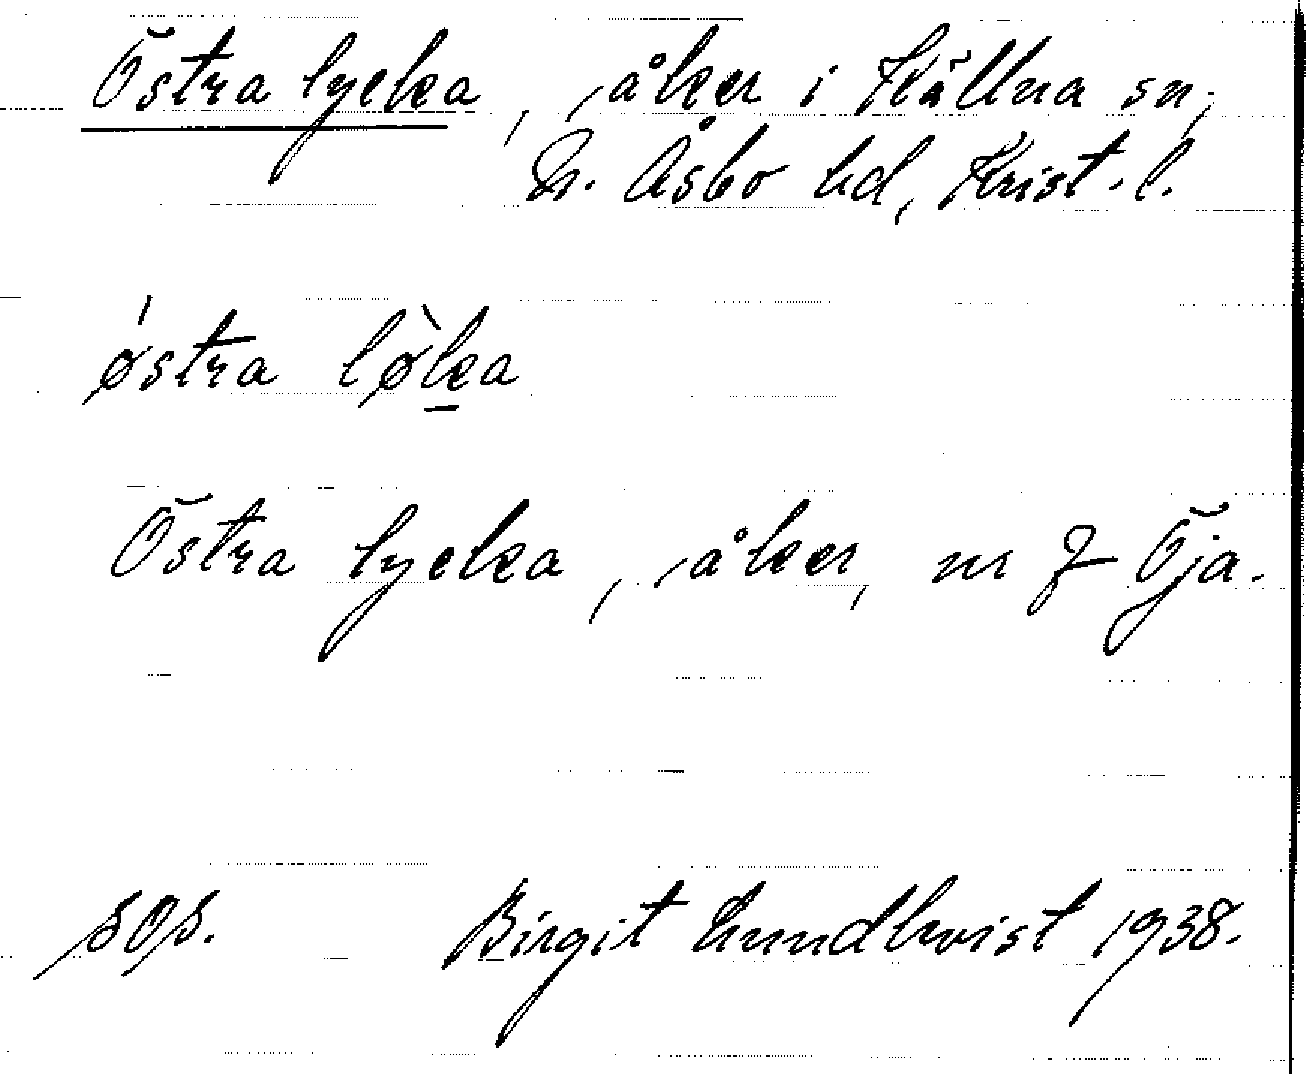 Östra lycka, åker i Källna sn,
N. Åsbo hd, Krist. l.
østra løka
Östra lycka, åker, nr 7 Öja.
sos. Birgit Lundkvist 1938.